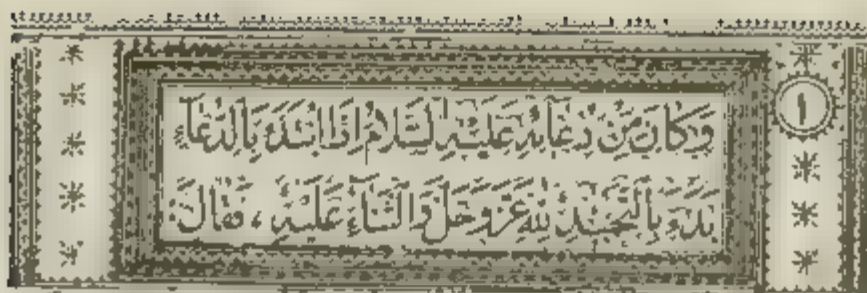 ١
وَكَانَ مِنْ دُعَائِهِ عَلَيْهِ السَّلَامُ اِذَا ابْتَدَءَ بِالدُّعَاءِ
بَدَءَ بِالتَّحْمِيْدِ لِلّٰهِ عَزَّوَجَلَّ وَالثَّنَاۤءِ عَلَيْهِ، فَقَالَ